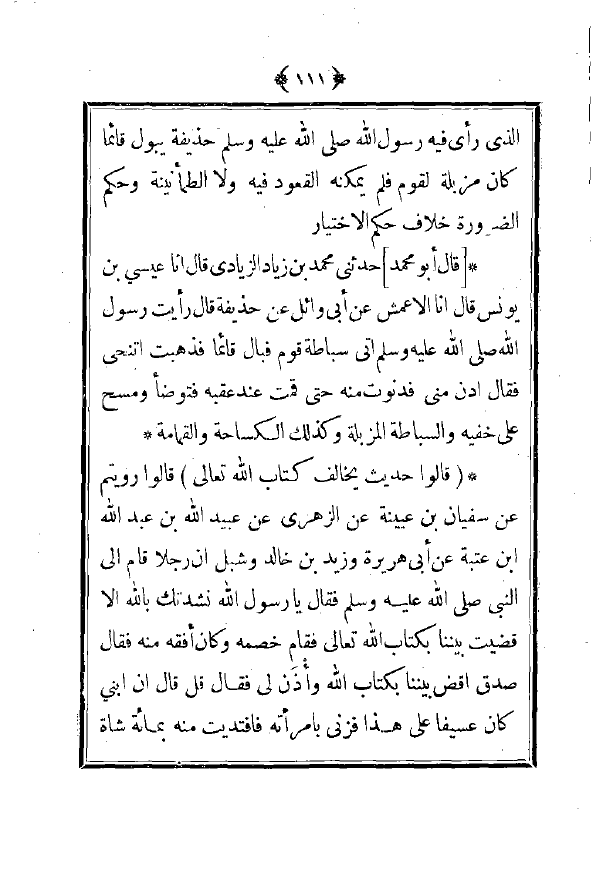 ﴿ ١١١ ﴾
الذى رأى فيه رسول الله صلى الله عليه وسلم حذيفة يبول قائما
كان مزبلة لقوم فلم يمكنه القعود فيه ولا الطمأنينة وحكم
الضرورة خلاف حكم الاختيار
*[قال أبو محمد] حدثنى محمد بن زياد الزيادى قال انا عيسي بن
يونس قال انا الاعمش عن أبى وائل عن حذيفة قال رأيت رسول
الله صلى الله عليه وسلم اتى سباطة قوم فبال قائما فذهبت اتنحى
فقال ادن منى فدنوت منه حتى قمت عند عقبه فتوضأ ومسح
على خفيه والسباطة المزبلة وكذلك الكساحة والقمامة *
*( قالوا حديث يخالف كتاب الله تعالى ) قالوا رويتم
عن سفيان بن عيينة عن الزهرى عن عبيد الله بن عبد الله
ابن عتبة عن أبى هريرة وزيد بن خالد وشبل ان رجلا قام الى
النبى صلى الله عليه وسلم فقال يا رسول الله نشدتك بالله الا
قضيت بيننا بكتاب الله تعالى فقام خصمه وكان أفقه منه فقال
صدق اقض بيننا بكتاب الله وأذن لى فقال قل قال ان ابني
كان عسيفا على هذا فزنى بامرأته فافتديت منه بمائة شاة